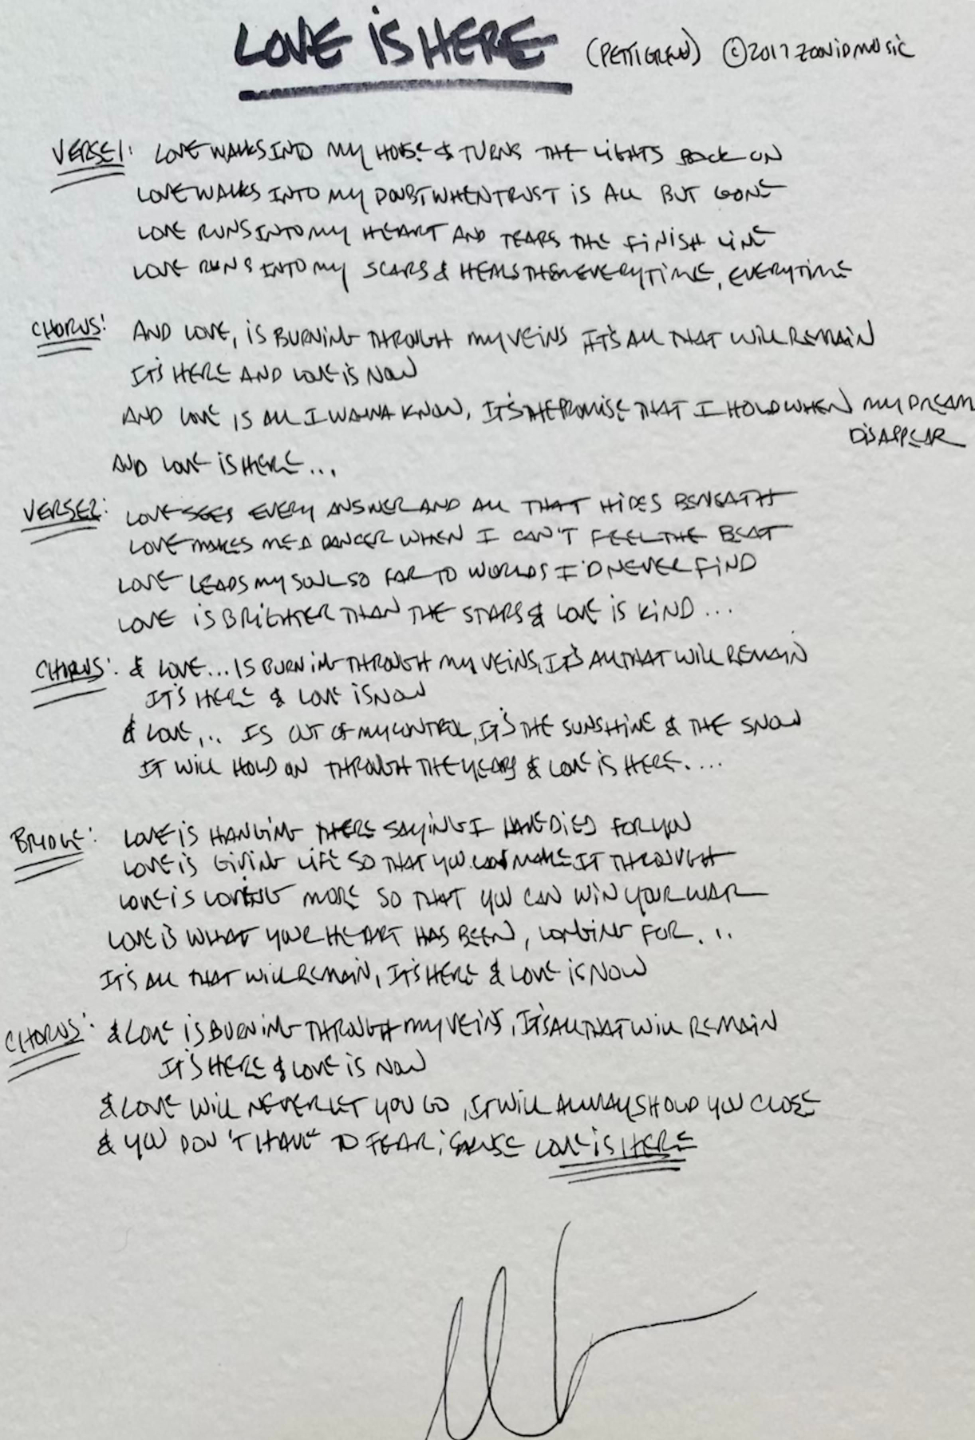 LOVE IS HERE (PETTIGREW) ©2017 ZOVIDMUSIC
VERSE 1: LOVE WALKS INTO MY HOUSE & TURNS THE LIGHTS BACK ON
LOVE WALKS INTO MY DOUBT WHEN TRUST IS ALL BUT GONE
LOVE RUNS INTO MY HEART AND TEARS THE FINISH LINE
LOVE RUNS INTO MY SCARS & HEALS THEM EVERYTIME, EVERYTIME
CHORUS: AND LOVE, IS BURNING THROUGH MY VEINS IT'S ALL THAT WILL REMAIN
IT'S HERE AND LOVE IS NOW
AND LOVE IS ALL I WANNA KNOW, IT'S THE PROMISE THAT I HOLD WHEN MY DREAM
DISAPPEAR
AND LOVE IS HERE...
VERSE 2: LOVE SEES EVERY ANSWER AND ALL THAT HIDES BENEATH
LOVE MAKES ME A DANCER WHEN I CAN'T FEEL THE BEAT
LOVE LEADS MY SOUL SO FAR TO WORLDS I'D NEVER FIND
LOVE IS BRIGHTER THAN THE STARS & LOVE IS KIND...
CHORUS: & LOVE... IS BURNING THROUGH MY VEINS, IT'S ALL THAT WILL REMAIN
IT'S HERE & LOVE IS NOW
& LOVE,.. IS OUT OF MY CONTROL, IT'S THE SUNSHINE & THE SNOW
IT WILL HOLD ON THROUGH THE YEARS & LOVE IS HERE....
BRIDGE: LOVE IS HANGING THERE SAYING I HAVE DIED FOR YOU
LOVE IS GIVING LIFE SO THAT YOU CAN MAKE IT THROUGH
LOVE IS LOVING MORE SO THAT YOU CAN WIN YOUR WAR
LOVE IS WHAT YOUR HEART HAS BEEN, LONGING FOR...
IT'S ALL THAT WILL REMAIN, IT'S HERE & LOVE IS NOW
CHORUS: & LOVE IS BURNING THROUGH MY VEINS, IT'S ALL THAT WILL REMAIN
IT'S HERE & LOVE IS NOW
& LOVE WILL NEVER LET YOU GO, IT WILL ALWAYS HOLD YOU CLOSE
& YOU DON'T HAVE TO FEAR, CAUSE LOVE IS HERE